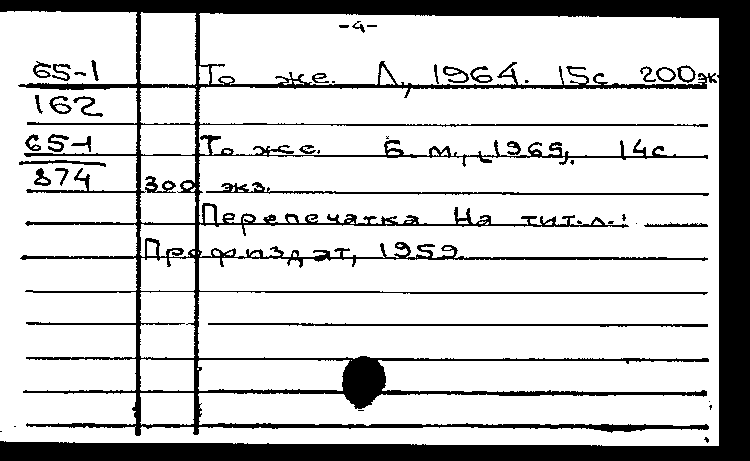 -4-
65-1 То же. Л., 1964. 15с. 200эк
162
65-1 То же. Б.м., [1965]. 14с.
874 300 экз.
Перепечатка. На тит.л.:
Профиздат, 1959.